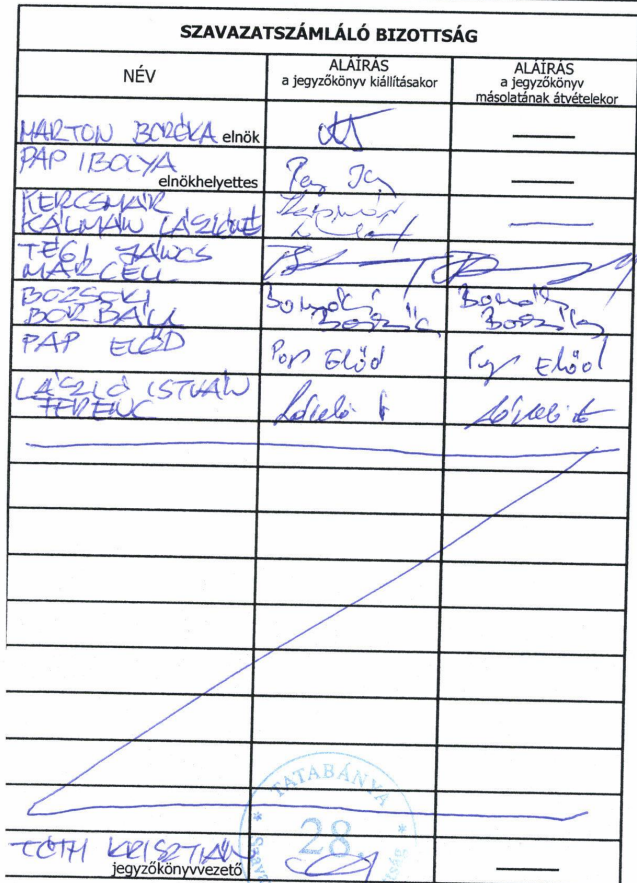 SZAVAZATSZÁMLÁLÓ BIZOTTSÁG
NÉV
ALÁÍRÁS
a jegyzőkönyv kiállításakor
ALÁÍRÁS
a jegyzőkönyv
másolatának átvételekor
MARTON BORÓKA elnök
PAP IBOLYA
elnökhelyettes
KERCSMÁR
KÁLMÁN LÁSZLÓNÉ
TÉGI JÁNOS
MARCELL
BOZSOKI
BORBÁLA
PAP ELŐD
Pap Előd
Pap Előd
LÁSZLÓ ISTVÁN
FERENC
TATABÁNYA
28.
TÓTH KRISZTIÁN
jegyzőkönyvvezető